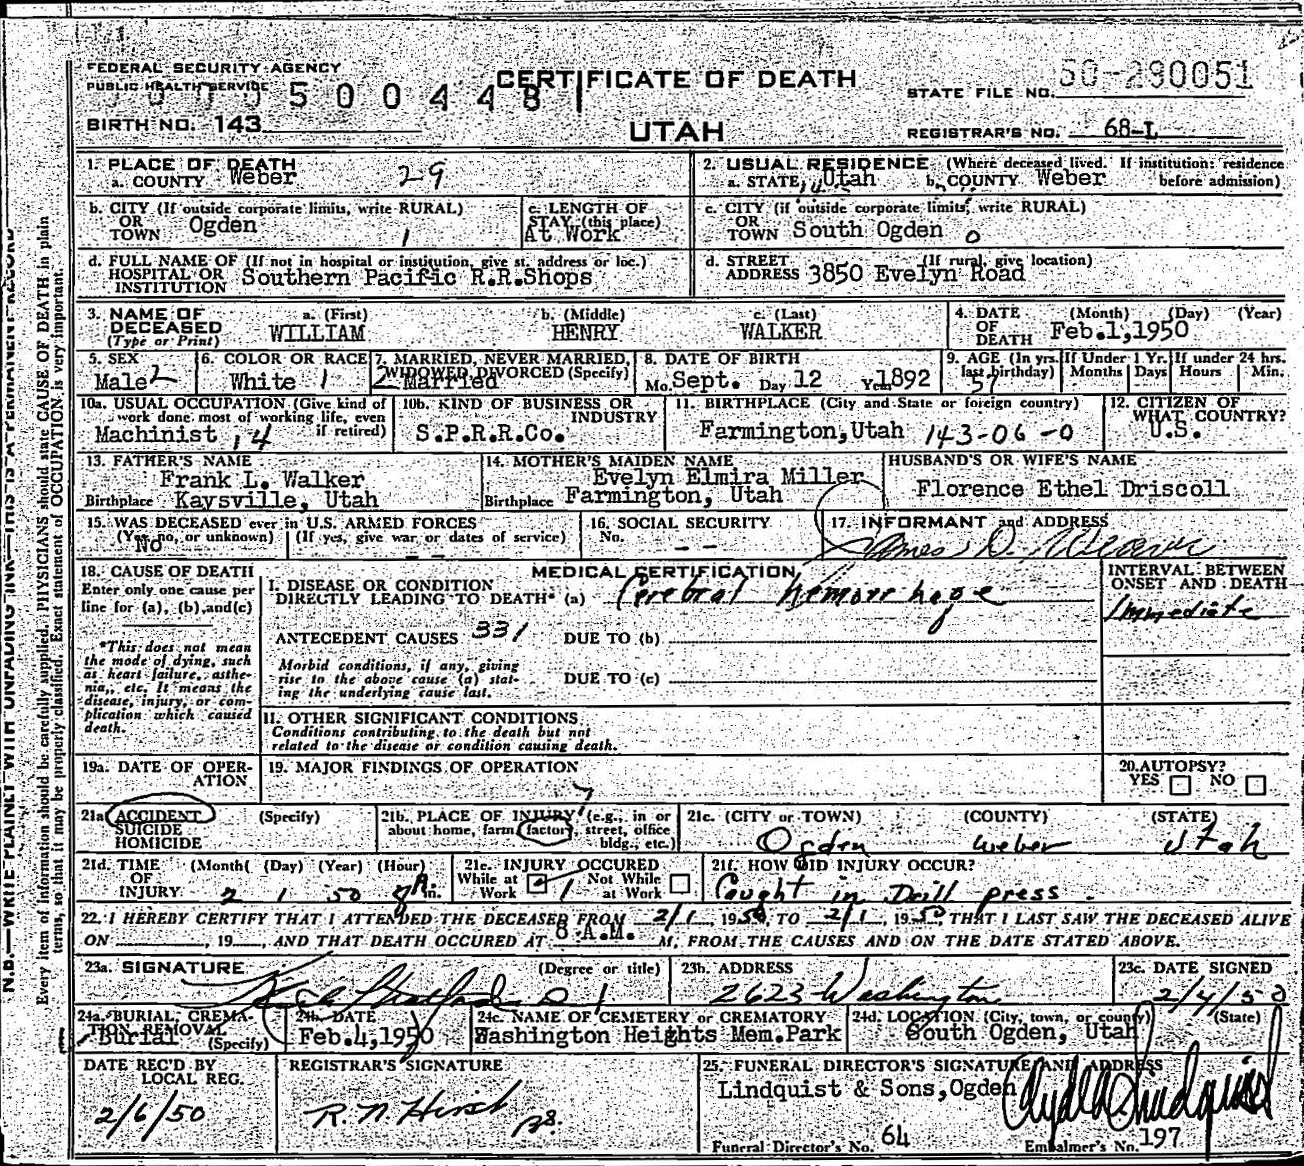 FEDERAL SECURITY AGENCY
PUBLIC HEALTH SERVICE
CERTIFICATE OF DEATH
UTAH
STATE FILE NO. 50-290051
BIRTH NO. 143
REGISTRAR'S NO. 68-L
1. PLACE OF DEATH
a. COUNTY Weber 29
2. USUAL RESIDENCE (Where deceased lived. If institution: residence before admission)
a. STATE Utah b. COUNTY Weber
b. CITY (If outside corporate limits, write RURAL)
OR TOWN Ogden 1
c. LENGTH OF STAY (this place)
At Work
c. CITY (if outside corporate limits, write RURAL)
OR TOWN South Ogden 0
d. FULL NAME OF (If not in hospital or institution, give st. address or loc.)
HOSPITAL OR INSTITUTION Southern Pacific R.R.Shops
d. STREET ADDRESS (If rural, give location)
3850 Evelyn Road
3. NAME OF DECEASED (Type or Print)
a. (First) b. (Middle) c. (Last)
WILLIAM HENRY WALKER
4. DATE OF DEATH (Month) (Day) (Year)
Feb.1,1950
5. SEX
Male 2
6. COLOR OR RACE
White 1
7. MARRIED, NEVER MARRIED, WIDOWED DIVORCED (Specify)
2 Married
8. DATE OF BIRTH
Mo. Sept. Day 12 Year 1892
9. AGE (In yrs. last birthday) 57
If Under 1 Yr. Months Days
If under 24 hrs. Hours Min.
10a. USUAL OCCUPATION (Give kind of work done most of working life, even if retired)
Machinist, 4
10b. KIND OF BUSINESS OR INDUSTRY
S.P.R.R.Co.
11. BIRTHPLACE (City and State or foreign country)
Farmington,Utah 143-06-0
12. CITIZEN OF WHAT COUNTRY?
U.S.
13. FATHER'S NAME
Frank L. Walker
Birthplace Kaysville, Utah
14. MOTHER'S MAIDEN NAME
Evelyn Elmira Miller
Birthplace Farmington, Utah
HUSBAND'S OR WIFE'S NAME
Florence Ethel Driscoll
15. WAS DECEASED ever in U.S. ARMED FORCES
(Yes, no, or unknown) (If yes, give war or dates of service)
No - -
16. SOCIAL SECURITY
No. - -
17. INFORMANT and ADDRESS
James D.
18. CAUSE OF DEATH
Enter only one cause per line for (a), (b), and (c)
*This does not mean the mode of dying, such as heart failure, asthenia, etc. It means the disease, injury, or complication which caused death.
MEDICAL CERTIFICATION
I. DISEASE OR CONDITION
DIRECTLY LEADING TO DEATH* (a) Cerebral hemorrhage
ANTECEDENT CAUSES 331 DUE TO (b)
Morbid conditions, if any, giving rise to the above cause (a) stating the underlying cause last.
DUE TO (c)
INTERVAL BETWEEN ONSET AND DEATH
Immediate
II. OTHER SIGNIFICANT CONDITIONS
Conditions contributing to the death but not related to the disease or condition causing death.
19a. DATE OF OPERATION
19. MAJOR FINDINGS OF OPERATION
20. AUTOPSY?
YES NO
21a ACCIDENT (Specify)
SUICIDE
HOMICIDE
21b. PLACE OF INJURY (e.g., in or about home, farm, factory, street, office bldg., etc.)
7
21c. (CITY or TOWN) (COUNTY) (STATE)
Ogden Weber Utah
21d. TIME OF INJURY. (Month) (Day) (Year) (Hour)
2 1 50 8 A m.
21e. INJURY OCCURED
While at Work Not While at Work
21f. HOW DID INJURY OCCUR?
Caught in Drill press.
22. I HEREBY CERTIFY THAT I ATTENDED THE DECEASED FROM 2/1, 1950, TO 2/1, 1950, THAT I LAST SAW THE DECEASED ALIVE
ON , 19 , AND THAT DEATH OCCURED AT 8 A.M. M, FROM THE CAUSES AND ON THE DATE STATED ABOVE.
23a. SIGNATURE (Degree or title)
23b. ADDRESS
2623 Washington
23c. DATE SIGNED
2/4/50
24a. BURIAL, CREMATION, REMOVAL (Specify)
Burial
24b. DATE
Feb.4,1950
24c. NAME OF CEMETERY OR CREMATORY
Washington Heights Mem.Park
24d. LOCATION (City, town, or county) (State)
South Ogden, Utah
DATE REC'D BY LOCAL REG.
2/6/50
REGISTRAR'S SIGNATURE
R. N. Hirst
25. FUNERAL DIRECTOR'S SIGNATURE AND ADDRESS
Lindquist & Sons,Ogden
Clyde Lindquist
Funeral Director's No. 64 Embalmer's No. 197
N.B.—WRITE PLAINLY WITH UNFADING INK—THIS IS A PERMANENT RECORD
Every item of information should be carefully supplied. PHYSICIANS should state CAUSE OF DEATH in plain
terms, so that it may be properly classified. Exact statement of OCCUPATION is very important.